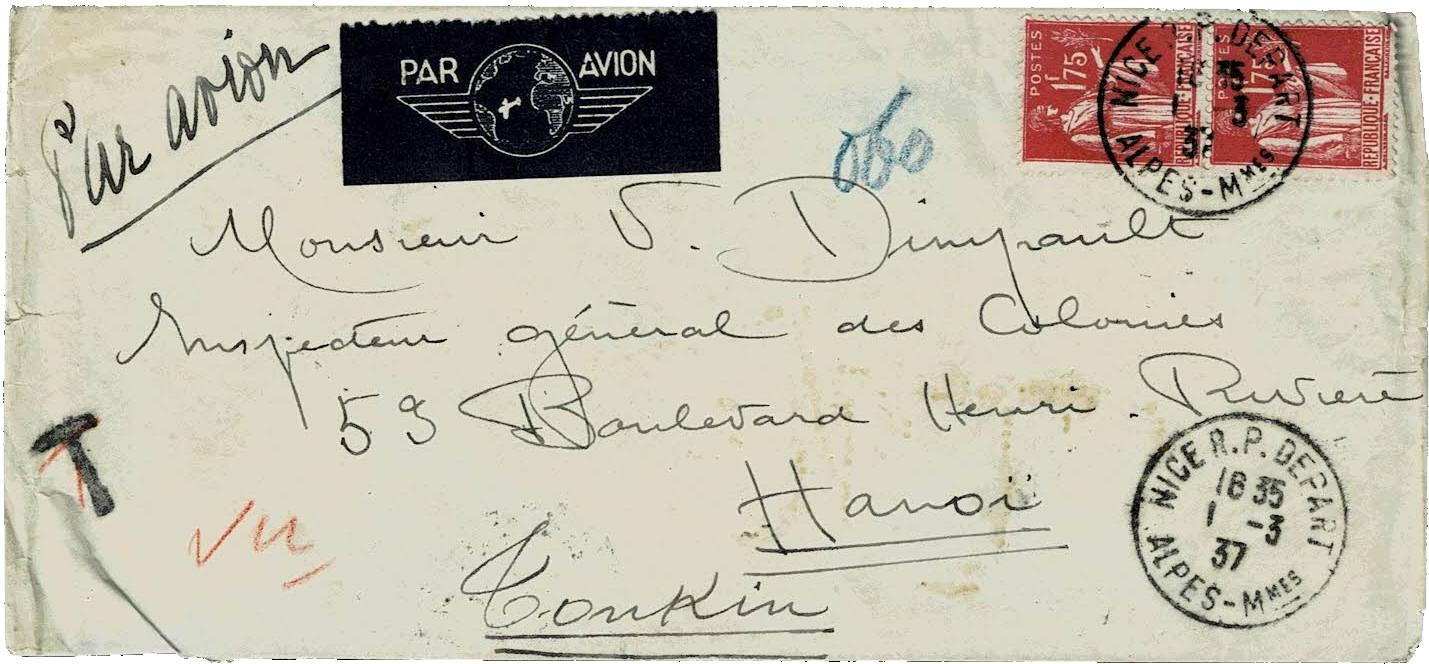 Par avion
PAR AVION
060
POSTES
1F75
RÉPUBLIQUE FRANÇAISE
POSTES
1F75
RÉPUBLIQUE FRANÇAISE
NICE R.P. DEPART
16 35
1 -3
37
ALPES-MMES
Monsieur V. Dimpault
Inspecteur général des Colonies
59 Boulevard Henri Rivière
Hanoï
Tonkin
T
T
Vu
NICE R.P. DEPART
16 35
1 -3
37
ALPES-MMES